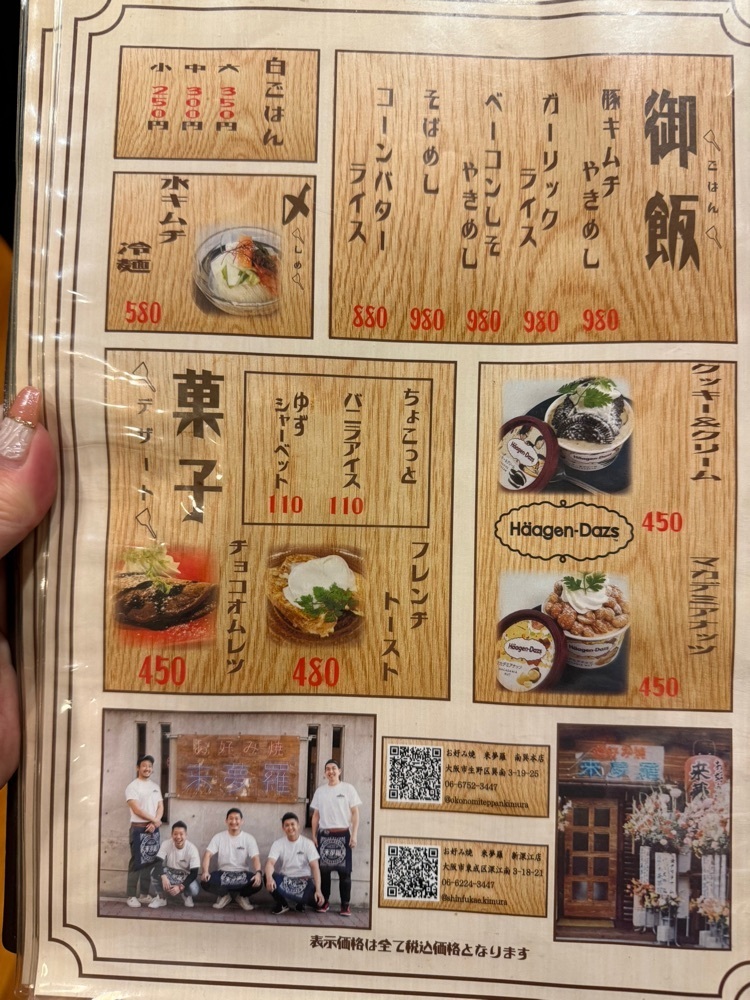 御飯
ごはん
豚キムチ
やきめし
980
ガーリック
ライス
980
ベーコンしそ
やきめし
980
そばめし
980
コーンバター
ライス
880
白ごはん
大 350円
中 300円
小 250円
〆
しめ
水キムチ
冷麺
580
菓子
デザート
ちょこっと
バニラアイス
110
ゆず
シャーベット
110
フレンチ
トースト
480
チョコオムレツ
450
クッキー&クリーム
450
Häagen-Dazs
マカデミアナッツ
450
Häagen-Dazs
Häagen-Dazs
Häagen-Dazs
お好み焼
来夢羅
お好み焼 来夢羅 南巽本店
大阪市生野区巽南 3-19-25
06-6752-3447
@okonomiteppankimura
お好み焼 来夢羅 新深江店
大阪市東成区深江南 3-18-21
06-6224-3447
@shinfukae.kimura
来夢羅
表示価格は全て税込価格となります